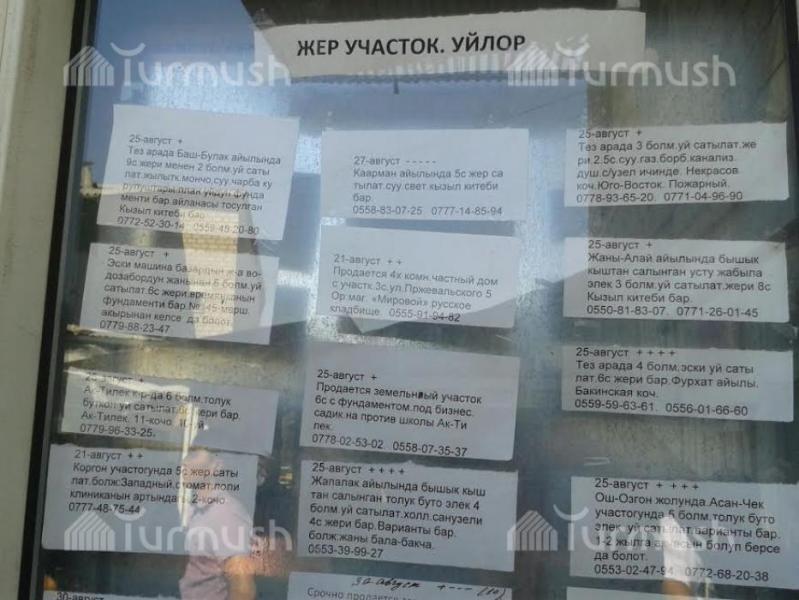 ЖЕР УЧАСТОК. УЙЛОР
Turmush
Turmush
25-август +
Тез арада Баш-Булак айылында
9с жери менен 2 болм.уй саты
лат.жылытк.мончо,суу.чарба ку
рулуштары.план уйдун фунда
менти бар.айланасы тосулган
Кызыл китеби бар
0772-52-30-14 0559-48-20-80
25-август +
Эски машина базардын ж-а во-
дозабордун жанынан 6 болм.уй
сатылат.6с жери.времянканын
фундаменти бар.№ 45-марш.
акырынан келсе да болот.
0779-88-23-47
25-август +
Ак-Тилек к-р-да 6 болм.толук
буткон уй сатылат.6с жери бар.
Ак-Тилек. 11-кочо.
0779-96-33-25.
21-август + +
Коргон участогунда 5с жер саты
лат.болж:Западный.стомат.поли
клиниканын артындагы 2-кочо.
0777-48-75-44
30-август
27-август - - - - -
Каарман айылында 5с жер са
тылат.суу свет.кызыл китеби
бар.
0558-83-07-25 0777-14-85-94
21-август + +
Продается 4х комн.частный дом
с участк.3с.ул.Пржевальского 5
Ор:маг. «Мировой» русское
кладбище. 0555-91-94-82
25-август +
Продается земельный участок
6с с фундаментом.под бизнес.
садик.на против школы Ак-Ти
лек.
0778-02-53-02 0558-07-35-37
25-август + + + +
Жапалак айылында бышык кыш
тан салынган толук буто элек 4
болм.уй сатылат.холл.санузели
4с жери бар.Варианты бар.
болж:жаны бала-бакча.
0553-39-99-27
30-август + - - - (10)
Срочно
25-август +
Тез арада 3 болм.уй сатылат.же
ри 2.5с.суу.газ.борб.канализ.
душ.с/узел ичинде. Некрасов
коч.Юго-Восток. Пожарный.
0778-93-65-20. 0771-04-96-90
25-август +
Жаны-Алай айылында бышык
кыштан салынган усту жабыла
элек 3 болм.уй сатылат.жери 8с
Кызыл китеби бар.
0550-81-83-07. 0771-26-01-45
25-август + + + +
Тез арада 4 болм.эски уй саты
лат.6с жери бар.Фурхат айылы.
Бакинская коч.
0559-59-63-61. 0556-01-66-60
25-август + + + +
Ош-Озгон жолунда.Асан-Чек
участогунда 5 болм.толук буто
элек уй сатылат.варианты бар.
1-2 жылга акчасын болуп берсе
да болот.
0553-02-47-94 0772-68-20-38
Turmush
Turmush